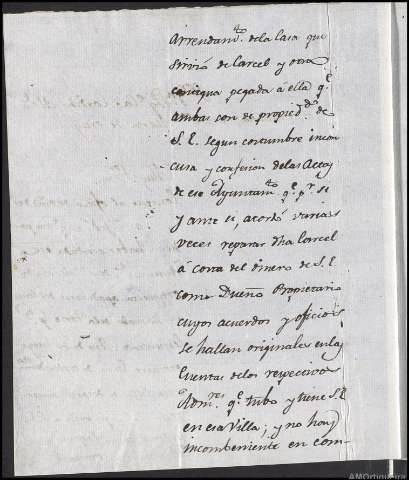 Arrendam.to dela Casa que
Sirvió de Carcel y otra
contigua pegada á ella q.e
ambas son de propied.d de
S. E. segun costumbre incon
cusa y confesion delas Actas
de ese Ayuntam.to q.e p.r si
y ante si, acordó varias
veces reparar dha Carcel
á costa del dinero de S. E.
como Dueño Propietario
cuyos acuerdos y oficios
se hallan originales enlas
Cuentas delos respectivos
Adm.res q.e tubo y tiene S.E.
en esa Villa; y no hay
incombeniente en com-
AMOrtigueira